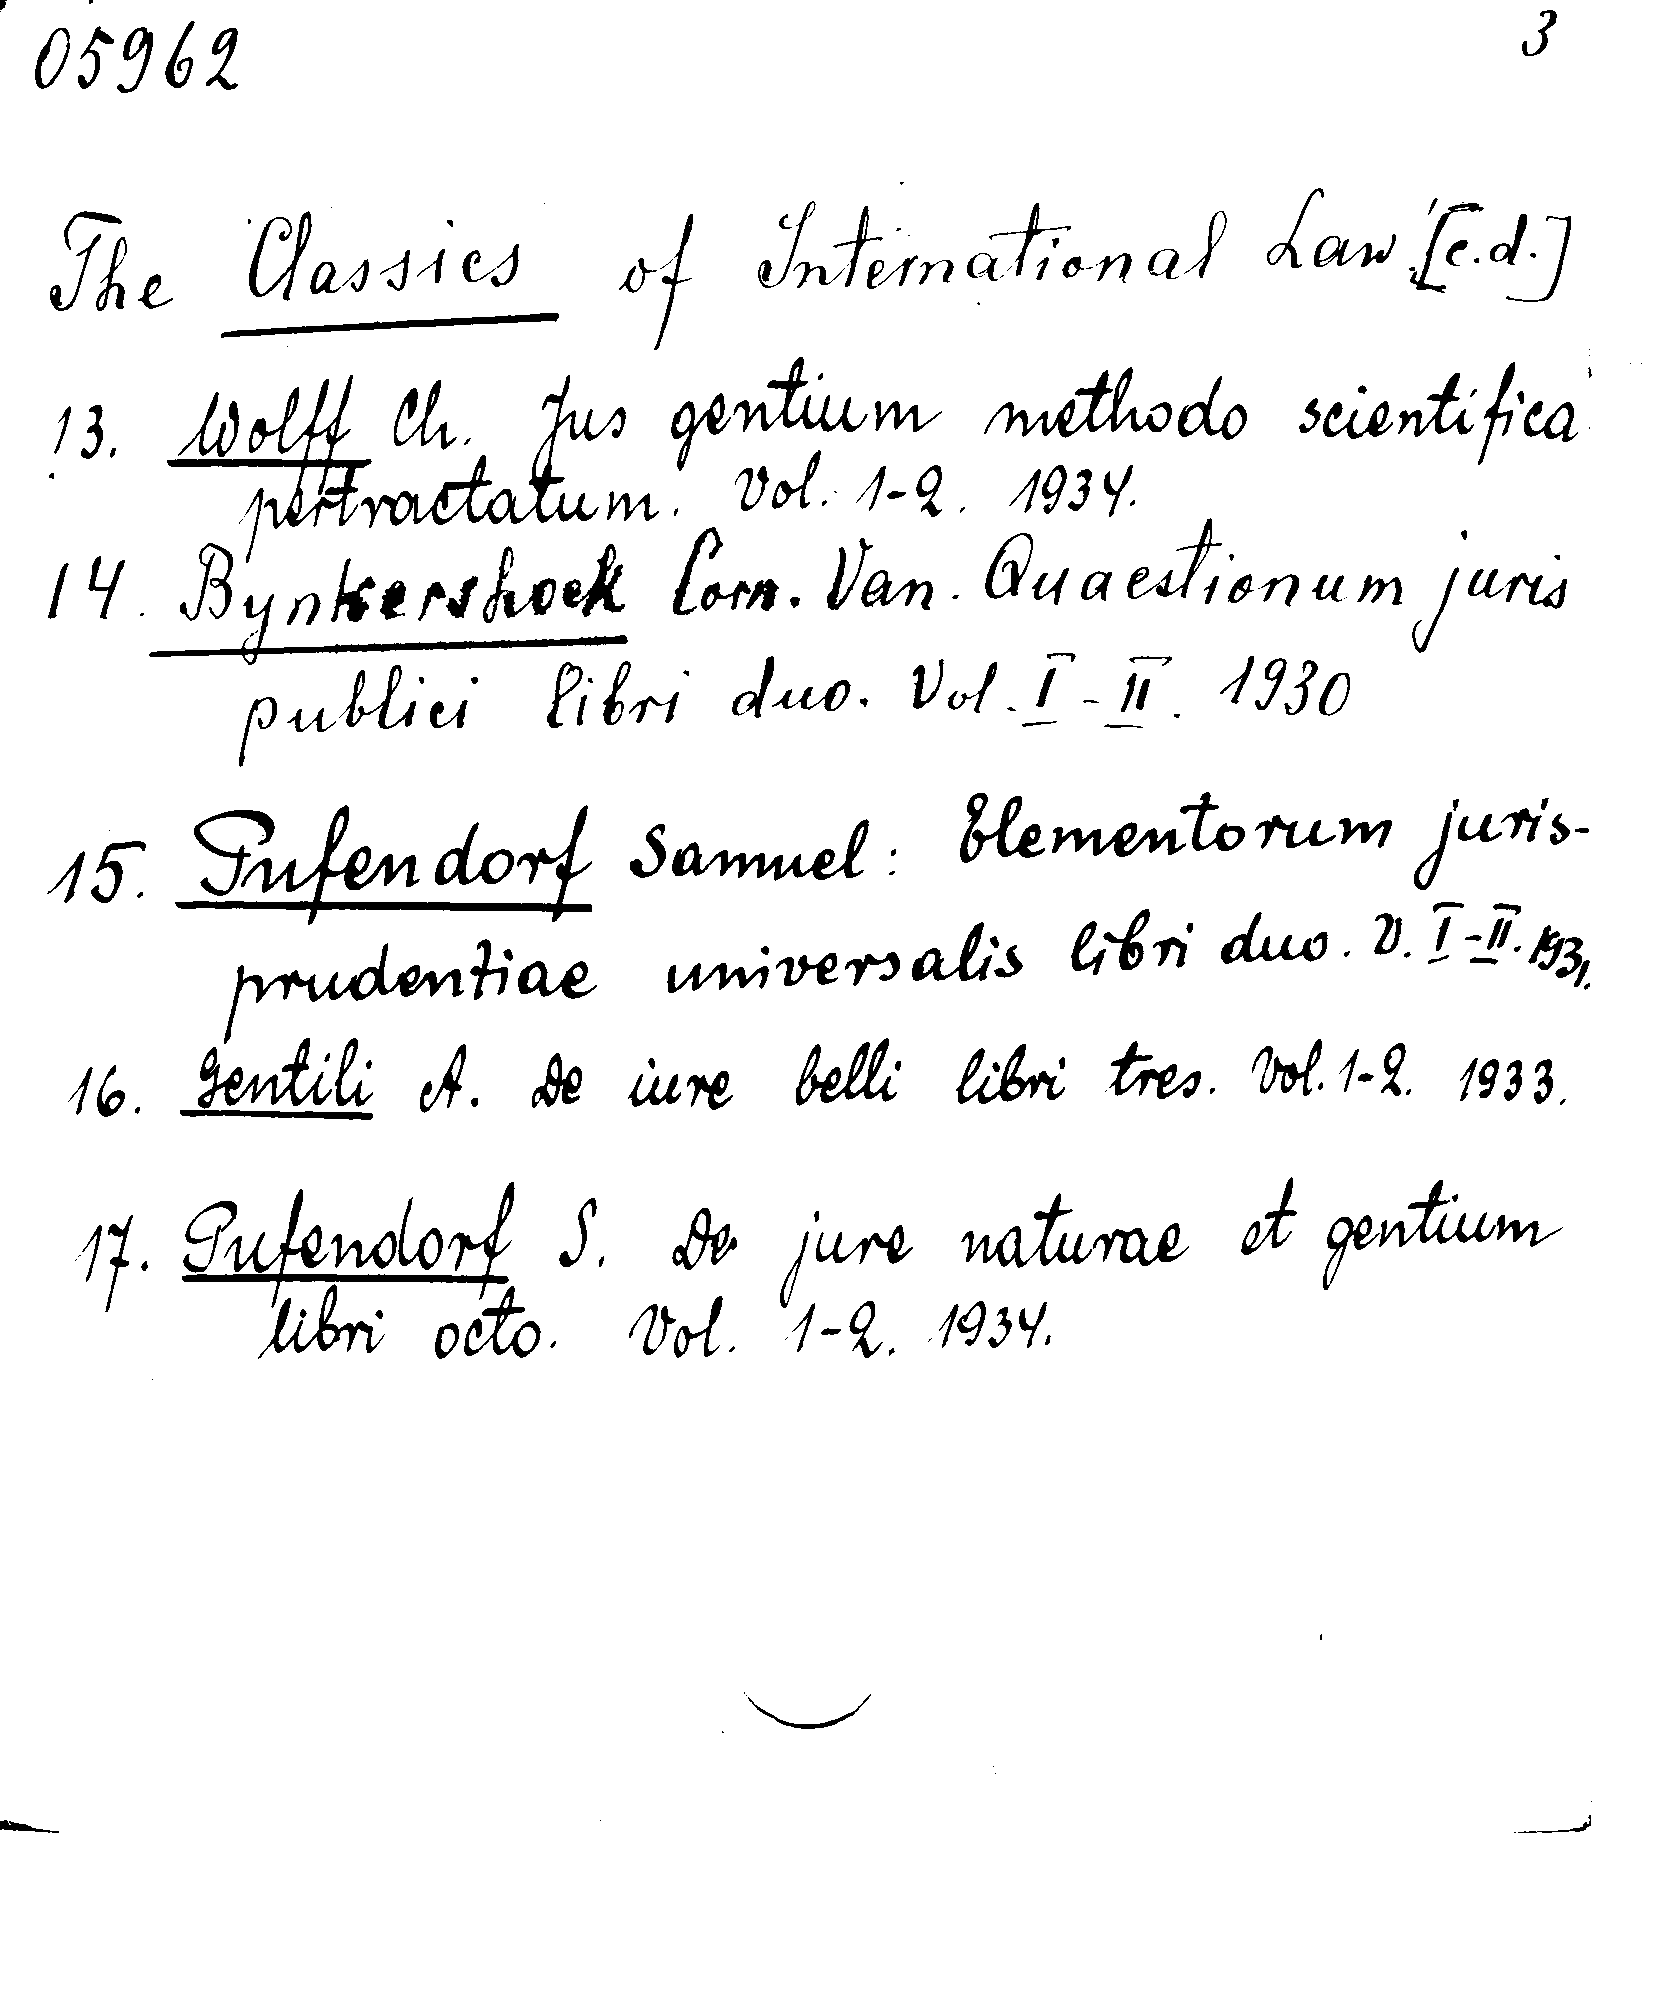 05962
3
The Classics of International Law [c.d.]
13. Wolff Ch. Jus gentium methodo scientifica
pertractatum. Vol. 1-2. 1934.
14. Bynkershoek Corn. Van. Quaestionum juris
publici libri duo. Vol. I-II. 1930
15. Pufendorf Samuel: Elementorum juris-
prudentiae universalis libri duo. V. I-II. 1931.
16. Gentili A. De iure belli libri tres. Vol. 1-2. 1933.
17. Pufendorf S. De jure naturae et gentium
libri octo. Vol. 1-2. 1934.